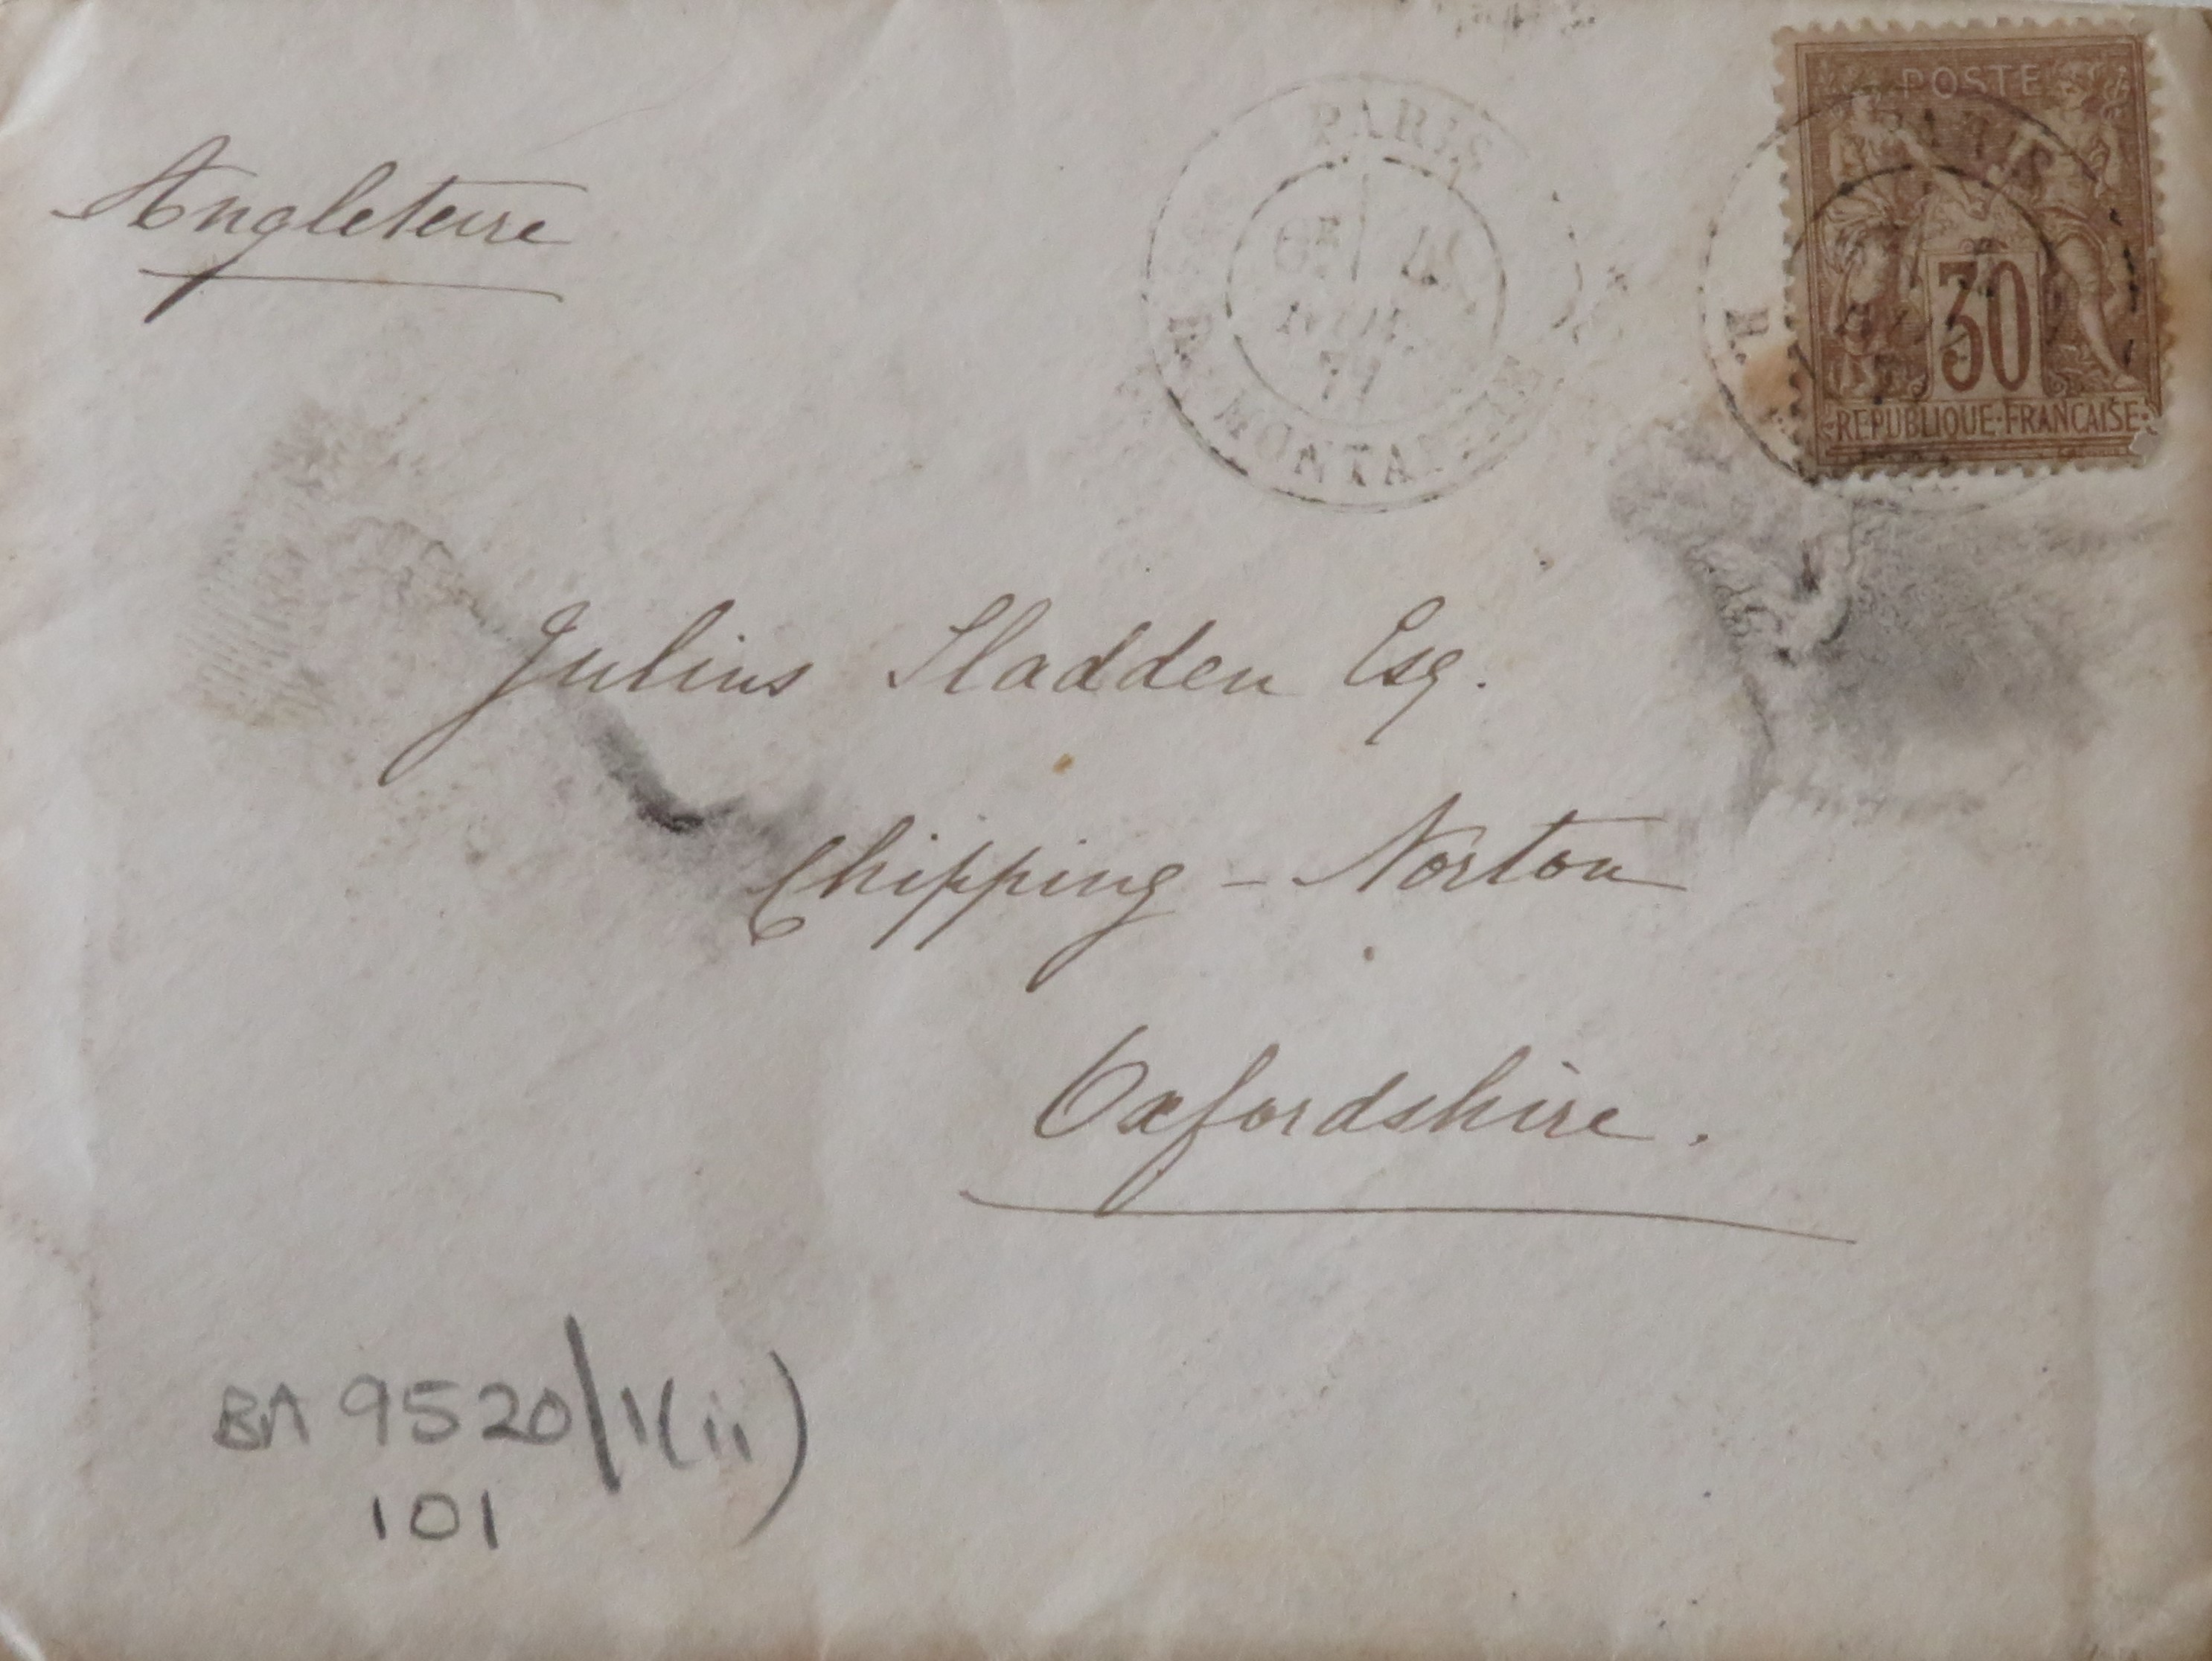 Angleterre
PARIS
77
R. MONTAI
POSTE
PARIS
R.
30
REPUBLIQUE·FRANCAISE
Julius Sladden Esq.
Chipping - Norton
Oxfordshire.
BA 9520/1(ii)
101